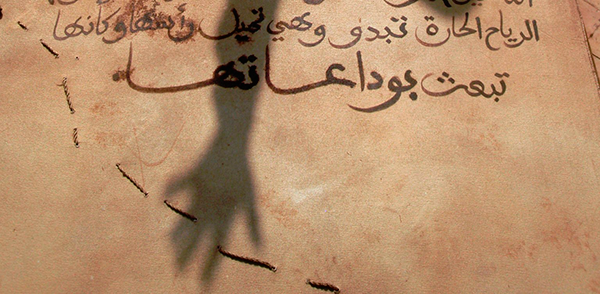 الرياح الحارة تبدو وهي تميل رأسها وكأنها
تبعث بوداعاتها